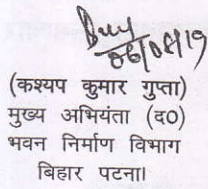 06/08/19
(कश्यप कुमार गुप्ता)
मुख्य अभियंता (द०)
भवन निर्माण विभाग
बिहार पटना।